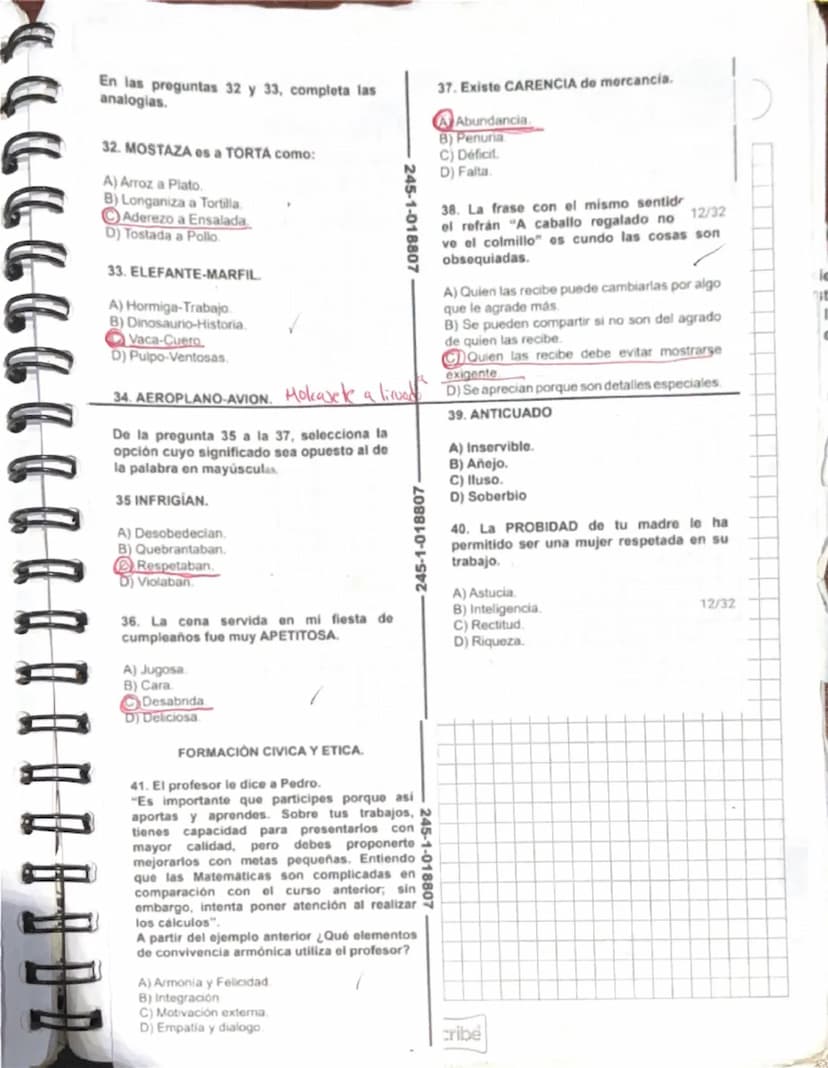 En las preguntas 32 y 33, completa las
analogías.
32. MOSTAZA es a TORTA como:
A) Arroz a Plato.
B) Longaniza a Tortilla.
C) Aderezo a Ensalada.
D) Tostada a Pollo.
33. ELEFANTE-MARFIL.
A) Hormiga-Trabajo.
B) Dinosaurio-Historia.
Vaca-Cuero.
D) Pulpo-Ventosas.
34. AEROPLANO-AVION.
De la pregunta 35 a la 37, selecciona la
opción cuyo significado sea opuesto al de
la palabra en mayúsculas
35 INFRIGÍAN.
A) Desobedecían.
B) Quebrantaban.
Respetaban.
D) Violaban.
36. La cena servida en mi fiesta de
cumpleaños fue muy APETITOSA.
A) Jugosa.
B) Cara.
C) Desabrida
D) Deliciosa
FORMACIÓN CIVICA Y ETICA.
41. El profesor le dice a Pedro.
"Es importante que participes porque así
aportas y aprendes. Sobre tus trabajos,
tienes capacidad para presentarlos con
mayor calidad, pero debes proponerte
mejorarlos con metas pequeñas. Entiendo
que las Matemáticas son complicadas en
comparación con el curso anterior; sin
embargo, intenta poner atención al realizar
los cálculos".
A partir del ejemplo anterior ¿Qué elementos
de convivencia armónica utiliza el profesor?
A) Armonía y Felicidad.
B) Integración
C) Motivación externa.
D) Empatía y dialogo.
245-1-018807
245-1-018807
245-1-018807
37. Existe CARENCIA de mercancía.
A) Abundancia.
B) Penuria.
C) Déficit.
D) Falta.
38. La frase con el mismo sentid
12/32
el refrán "A caballo regalado no
ve el colmillo" es cundo las cosas son
obsequiadas.
A) Quien las recibe puede cambiarlas por algo
que le agrade más.
B) Se pueden compartir si no son del agrado
de quien las recibe.
C) Quien las recibe debe evitar mostrarse
exigente.
D) Se aprecian porque son detalles especiales.
39. ANTICUADO
A) Inservible.
B) Añejo.
C) Iluso.
D) Soberbio
40. La PROBIDAD de tu madre le ha
permitido ser una mujer respetada en su
trabajo.
A) Astucia.
B) Inteligencia.
C) Rectitud.
D) Riqueza.
12/32
cribe